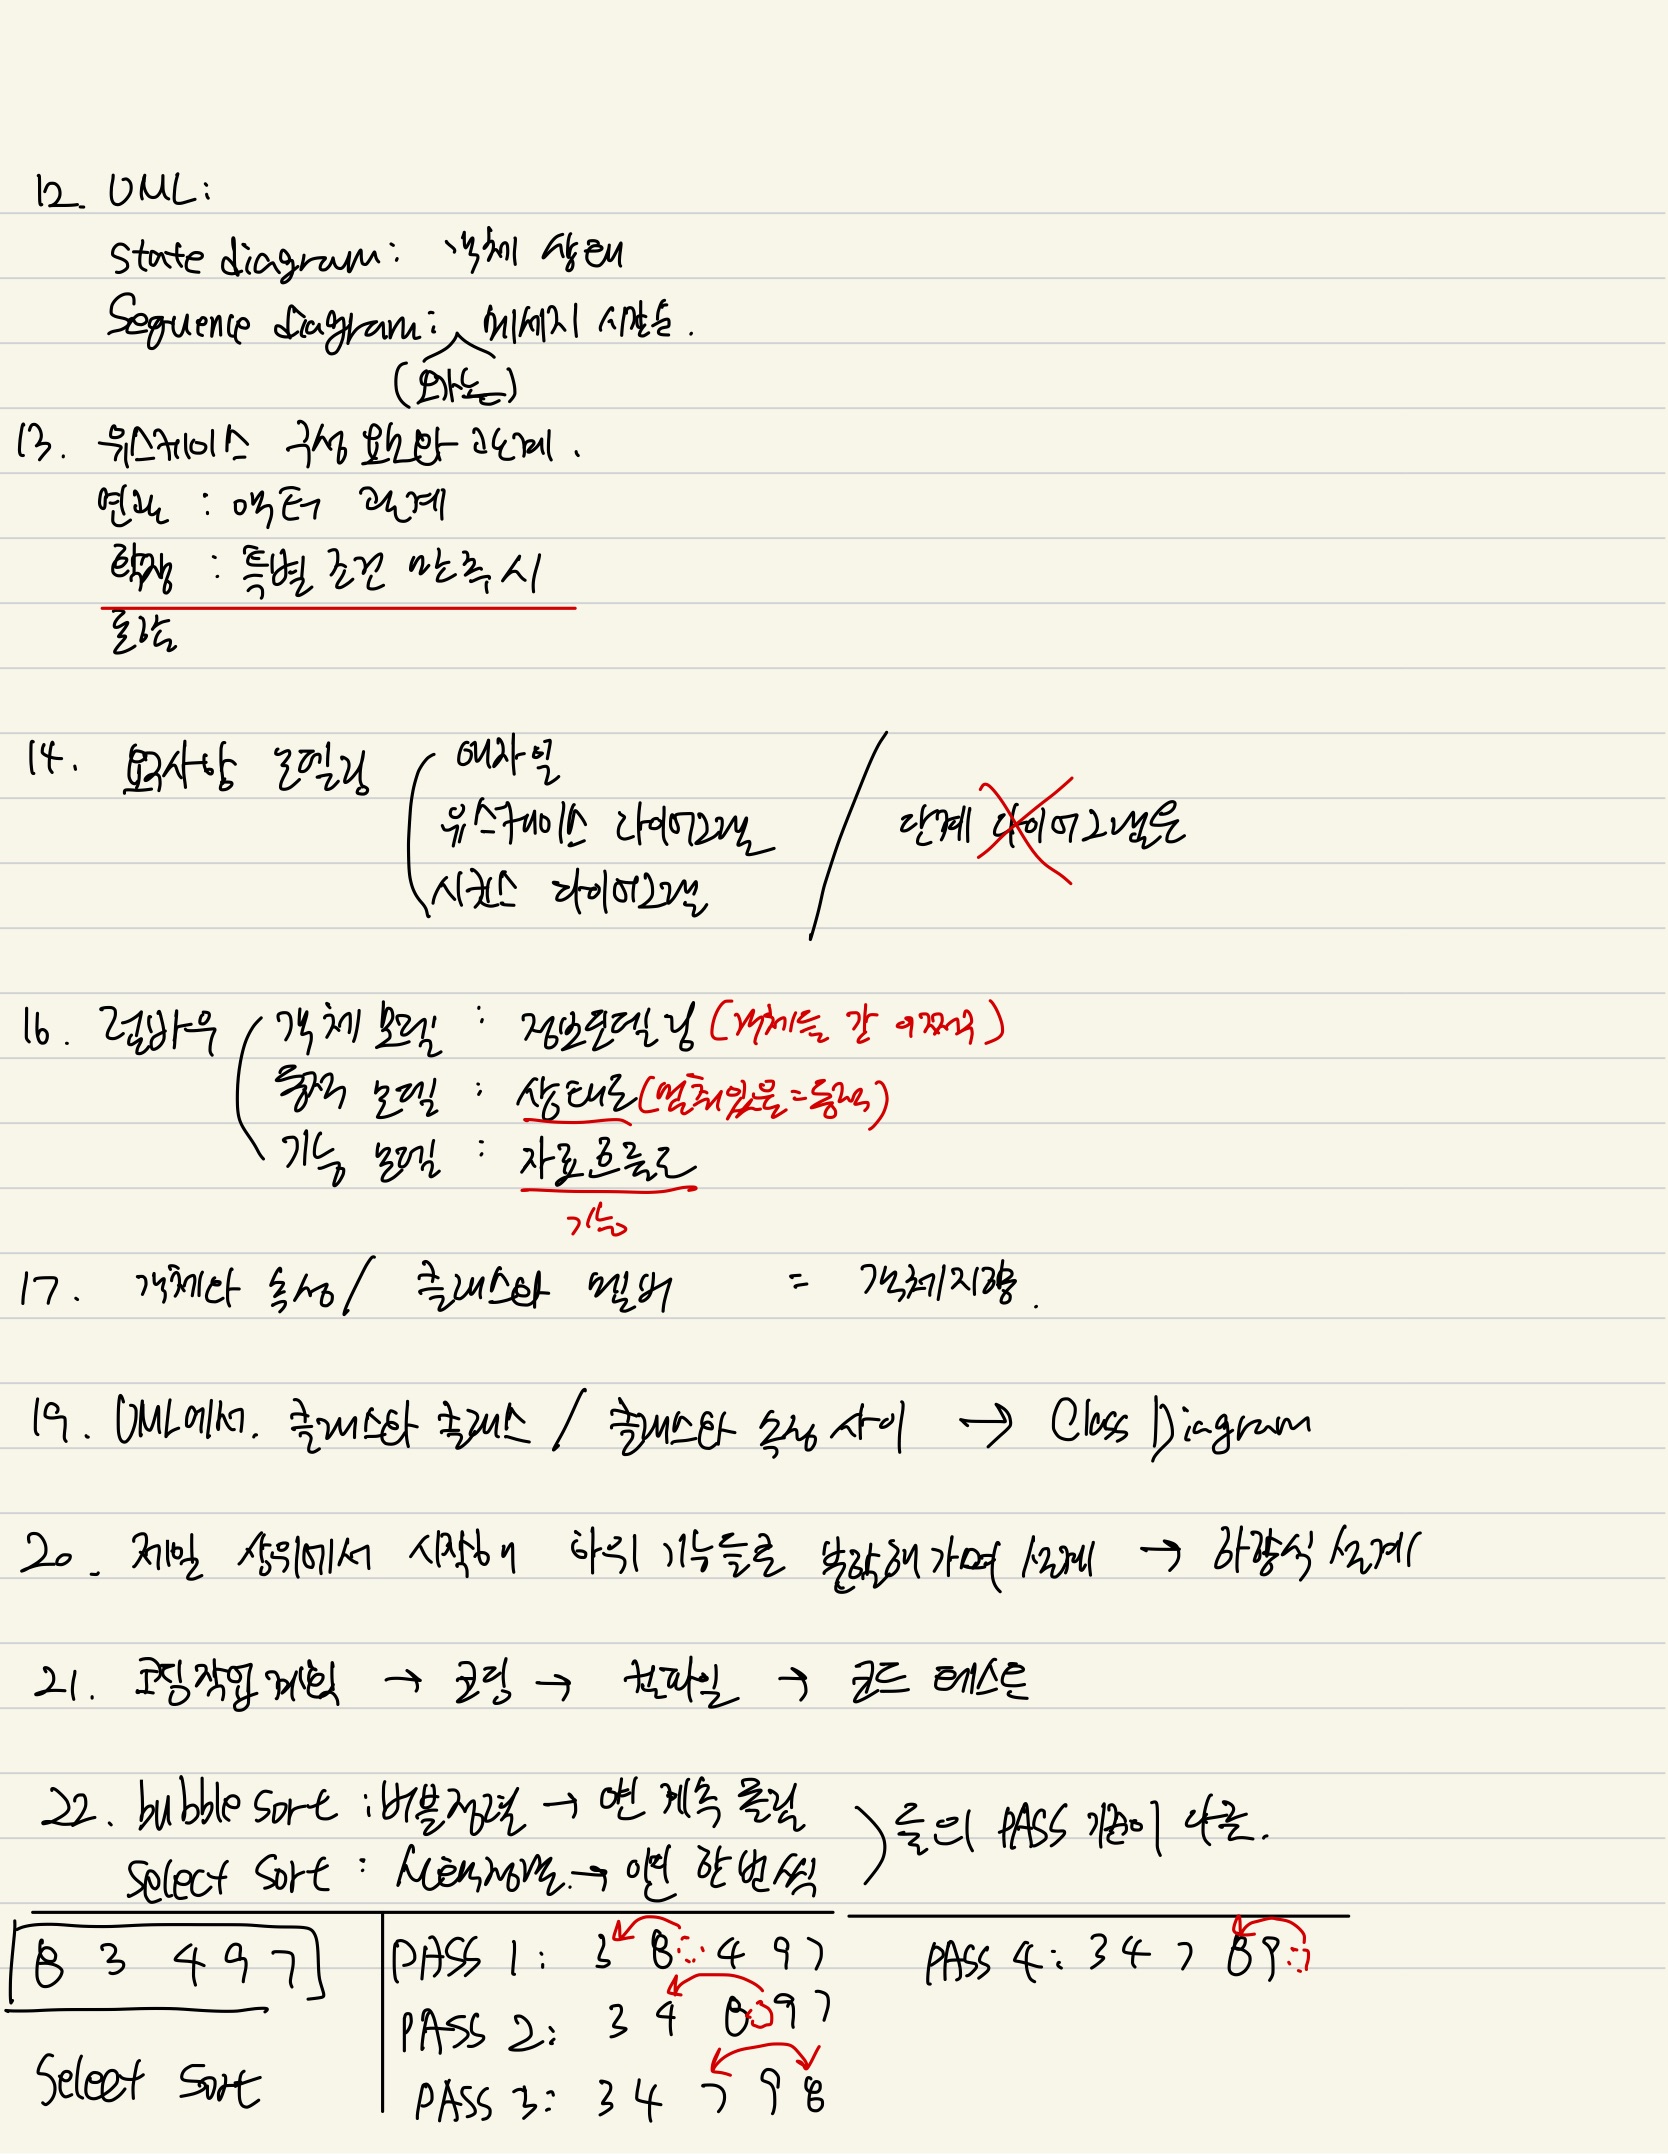 12. UML:
State diagram: 객체 상태
Sequence diagram: 메세지 시퀀스.
13. 유스케이스 구성 요소와 관계.
연관 : 액터 관계
확장 : 특별 조건 만족 시
포함
14. 요구사항 모델링
애자일
유스케이스 다이어그램
시퀀스 다이어그램
단계 다이어그램은
16. 럼바우
객체 모델 : 정보모델링 (객체들 간 어쩌구)
동적 모델 : 상태도 (멈춰있음=동적)
기능 모델 : 자료흐름도
기능
17. 객체와 속성 / 클래스와 멤버 = 객체지향.
19. UML에서. 클래스와 클래스 / 클래스와 속성 사이 → Class Diagram
20. 제일 상위에서 시작해 하위 기능들로 분할해가며 설계 → 하향식 설계
21. 코딩작업 계획 → 코딩 → 컴파일 → 코드 테스트
22. bubble sort : 버블정렬 → 얜 계속 돌림
Select sort : 선택정렬. → 얜 한번씩
둘의 PASS 기준이 다름.
8 3 4 9 7
Select Sort
PASS 1: 3 8 4 9 7
PASS 2: 3 4 8 9 7
PASS 3: 3 4 7 9 8
PASS 4: 3 4 7 8 9